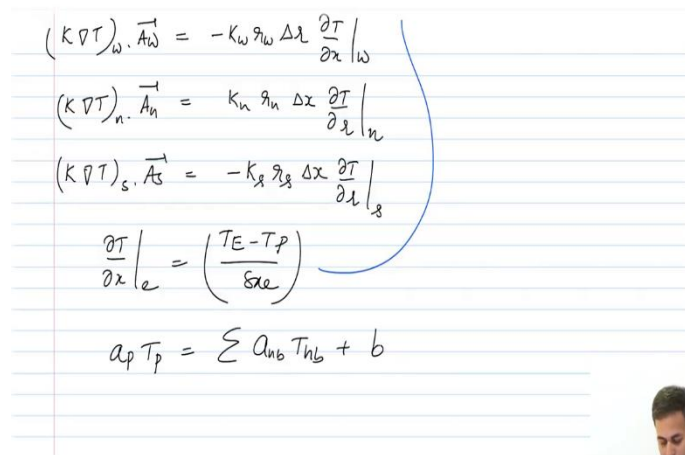 (K∇T)_w · A⃗_w = -K_w r_w Δr ∂T/∂x|_w
(K∇T)_n · A⃗_n = K_n r_n Δx ∂T/∂r|_n
(K∇T)_s · A⃗_s = -K_s r_s Δx ∂T/∂r|_s
∂T/∂x|_e = ((T_E - T_P)/δx_e)
a_p T_p = Σ a_nb T_nb + b